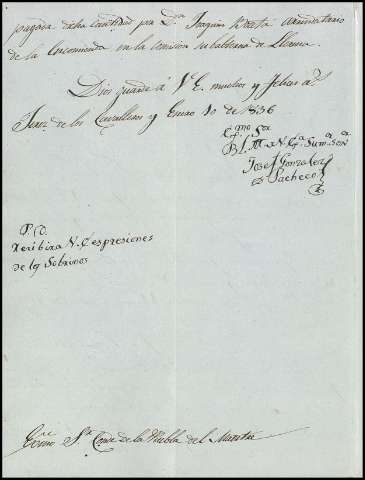 pagada dcha cantidad por Dn. Joaquin administrador
de la Encomienda en la de Llerena.
Dios guarde á V. E. muchos y felices as.
Jerez de los Cavalleros y Enero 10 de 1836
Exmo. Sr.
B. L. M. a V. Ea. Su mas
Josef Gonzalez
Pacheco
P. D.
Recibira V. E. espresiones
de los Sobrinos
Exmo. Sr. Conde de la Puebla del Maestre